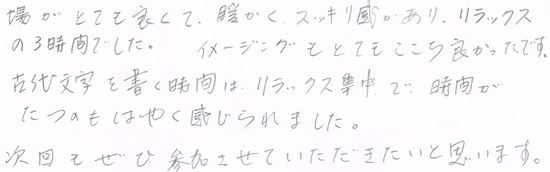 場がとても良くて、暖かく、スッキリ感があり、リラックス
の3時間でした。 イメージングもとてもここち良かったです。
古代文字を書く時間は、リラックス集中で、時間が
たつのもはやく感じられました。
次回もぜひ参加させていただきたいと思います。